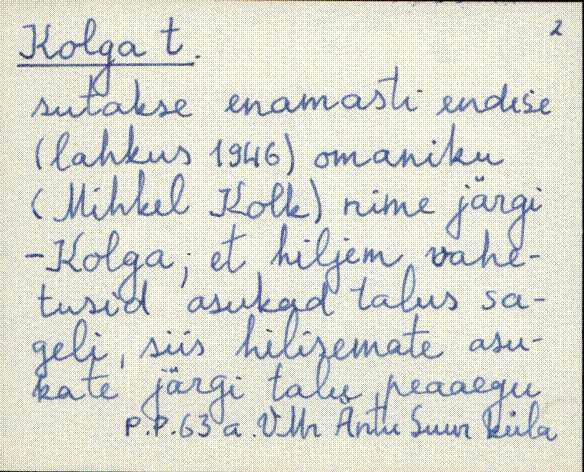 2
Kolga t.
sutakse enamasti endise
(lahkus 1946) omaniku
(Mihkel Kolk) nime järgi
-Kolga; et hiljem vahe-
tusid asukad talus sa-
geli, siis hilisemate asu-
kate järgi talu peaaegu
P.P.63 a. VMr Äntu Suur küla